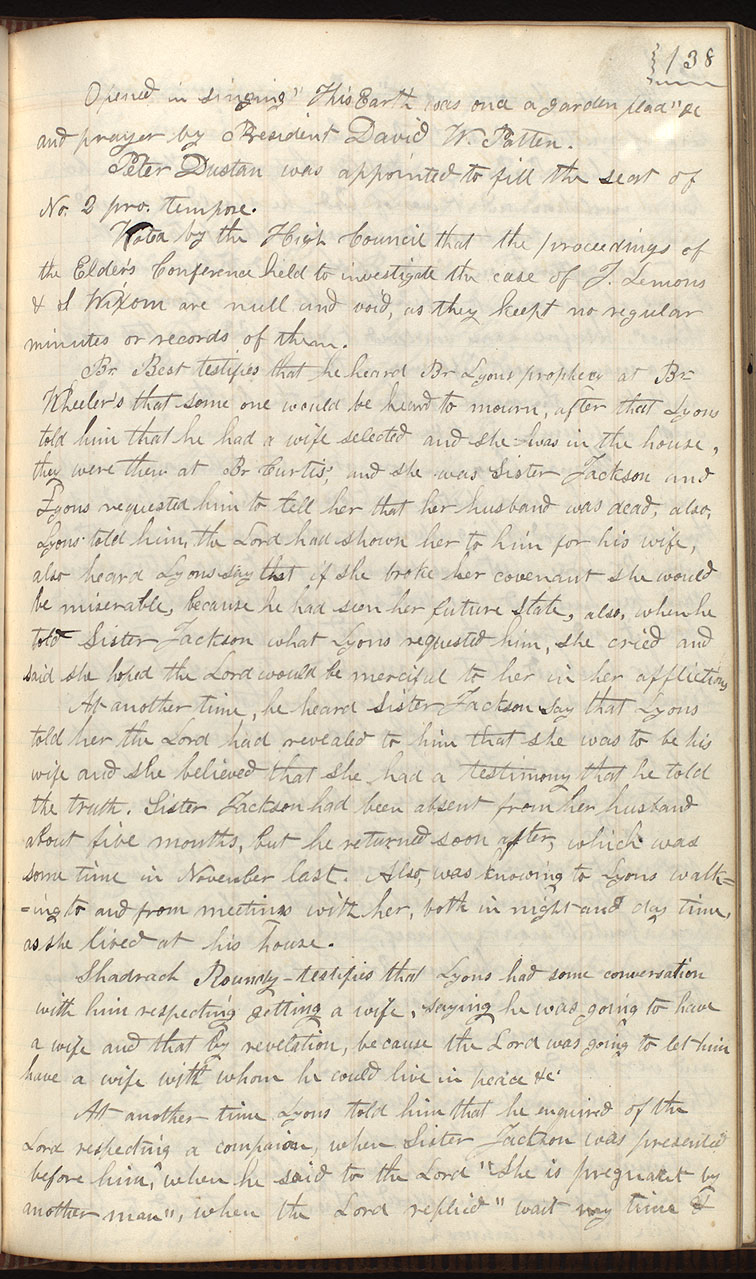 138
Opened in singing "This Earth was once a garden place" &c
and prayer by President David W. Patten.
Peter Dustan was appointed to fill the seat of
No. 2 pro. tempore.
Voted by the High Council that the proceedings of
the Elder's Conference held to investigate the case of J. Lemons
& S Wixom are null and void, as they keept no regular
minutes or records of them.
Br. Best testifies that he heard Br Lyons prophecy at Br
Wheeler's that some one would be heard to mourn, after that Lyons
told him that he had a wife selected and she was in the house,
they were then at Br Curtis', and she was Sister Jackson and
Lyons requested him to tell her that her husband was dead, also,
Lyons told him, the Lord had shown her to him for his wife,
also heard Lyons say that if she broke her covenant she would
be miserable, because he had seen her future state, also, when he
told Sister Jackson what Lyons requested him, she cried and
said she hoped the Lord would be merciful to her in her afflictions
At another time, he heard Sister Jackson say that Lyons
told her the Lord had revealed to him that she was to be his
wife and she believed that she had a testimony that he told
the truth. Sister Jackson had been absent from her husband
about five months, but he returned soon after, which was
some time in November last. Also, was knowing to Lyons walk=
=ing to and from meetings with her, both in night and day time,
as she lived at his house.
Shadrach Roundy testifies that Lyons had some conversation
with him respecting getting a wife, saying he was going to have
a wife and that by revelation, because the Lord was going to let him
have a wife with whom he could live in peace &c
At another time Lyons told him that he enquired of the
Lord respecting a compaion, when Sister Jackson was presented
before him, when he said to the Lord "She is pregnant by
another man", when the Lord replied "wait my time &